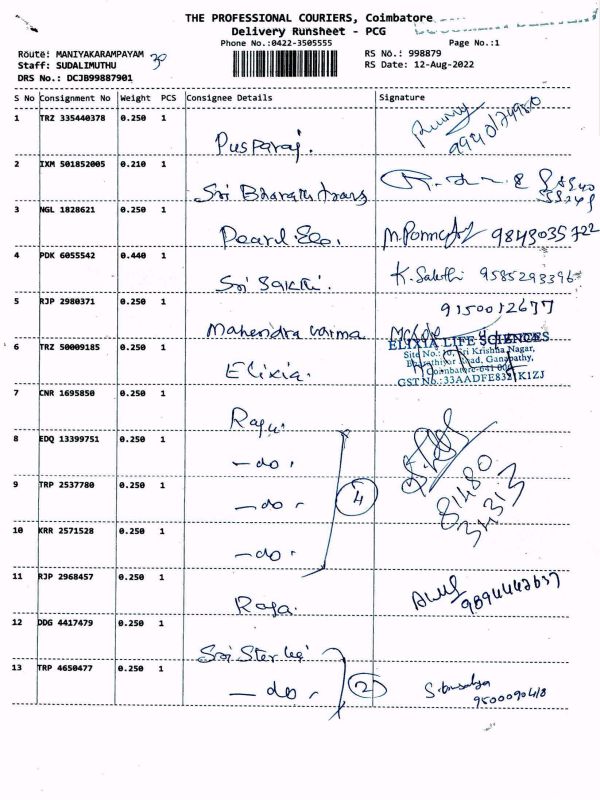 THE PROFESSIONAL COURIERS, Coimbatore
Delivery Runsheet - PCG
Phone No.:0422-3505555
Page No.:1
Route: MANIYAKARAMPAYAM 30
RS No.: 998879
Staff: SUDALIMUTHU
RS Date: 12-Aug-2022
DRS No.: DCJB99887901
S No Consignment No Weight PCS Consignee Details Signature
1 TRZ 335440378 0.250 1
Pusparaj.
2 IXM 501852005 0.210 1
Sri Bharath trans
3 NGL 1828621 0.250 1
Pearl Elo. 9843035722
4 PDK 6055542 0.440 1
Sri Sakthi. K. Sakthi 9585293396
5 RJP 2980371 0.250 1 9150012677
Mahendra varma
6 TRZ 50009185 0.250 1
ELIXIA LIFE SCIENCES
Site No.: 10, Sri Krishna Nagar,
Bharathiyar Road, Ganapathy,
Coimbatore-641 006
Elixia.
7 CNR 1695850 0.250 1
Raju.
8 EDQ 13399751 0.250 1
- do .
9 TRP 2537780 0.250 1
- do - 4
81480
34313
10 KRR 2571528 0.250 1
- do -
11 RJP 2968457 0.250 1
Raja. 9894442637
12 DDG 4417479 0.250 1
13 TRP 4650477 0.250 1
- do - 2
9500090418